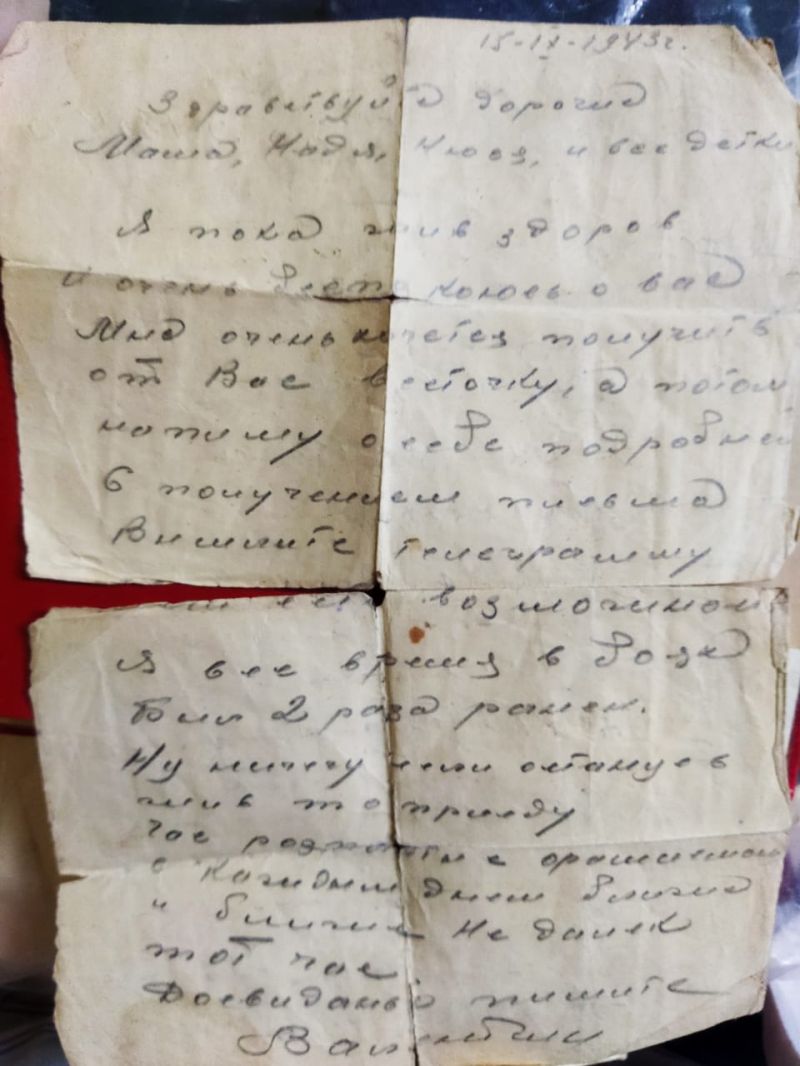 15-IX-1943г.
Здравствуйте дорогие
Маша, Надя, Нюся, и все детки
Я пока жив здоров
и очень беспокоюсь о вас
Мне очень хочется получить
от Вас весточку, а потом
напишу о себе подробней
С получением письма
Вышлите телеграмму
если возможно
Я все время в боях
Был 2 раза ранен.
Ну ничего если останусь
жив то приеду
Час с
с каждым днем ближе
и ближе Не далек
тот час
Досвиданье пишите
Валентин